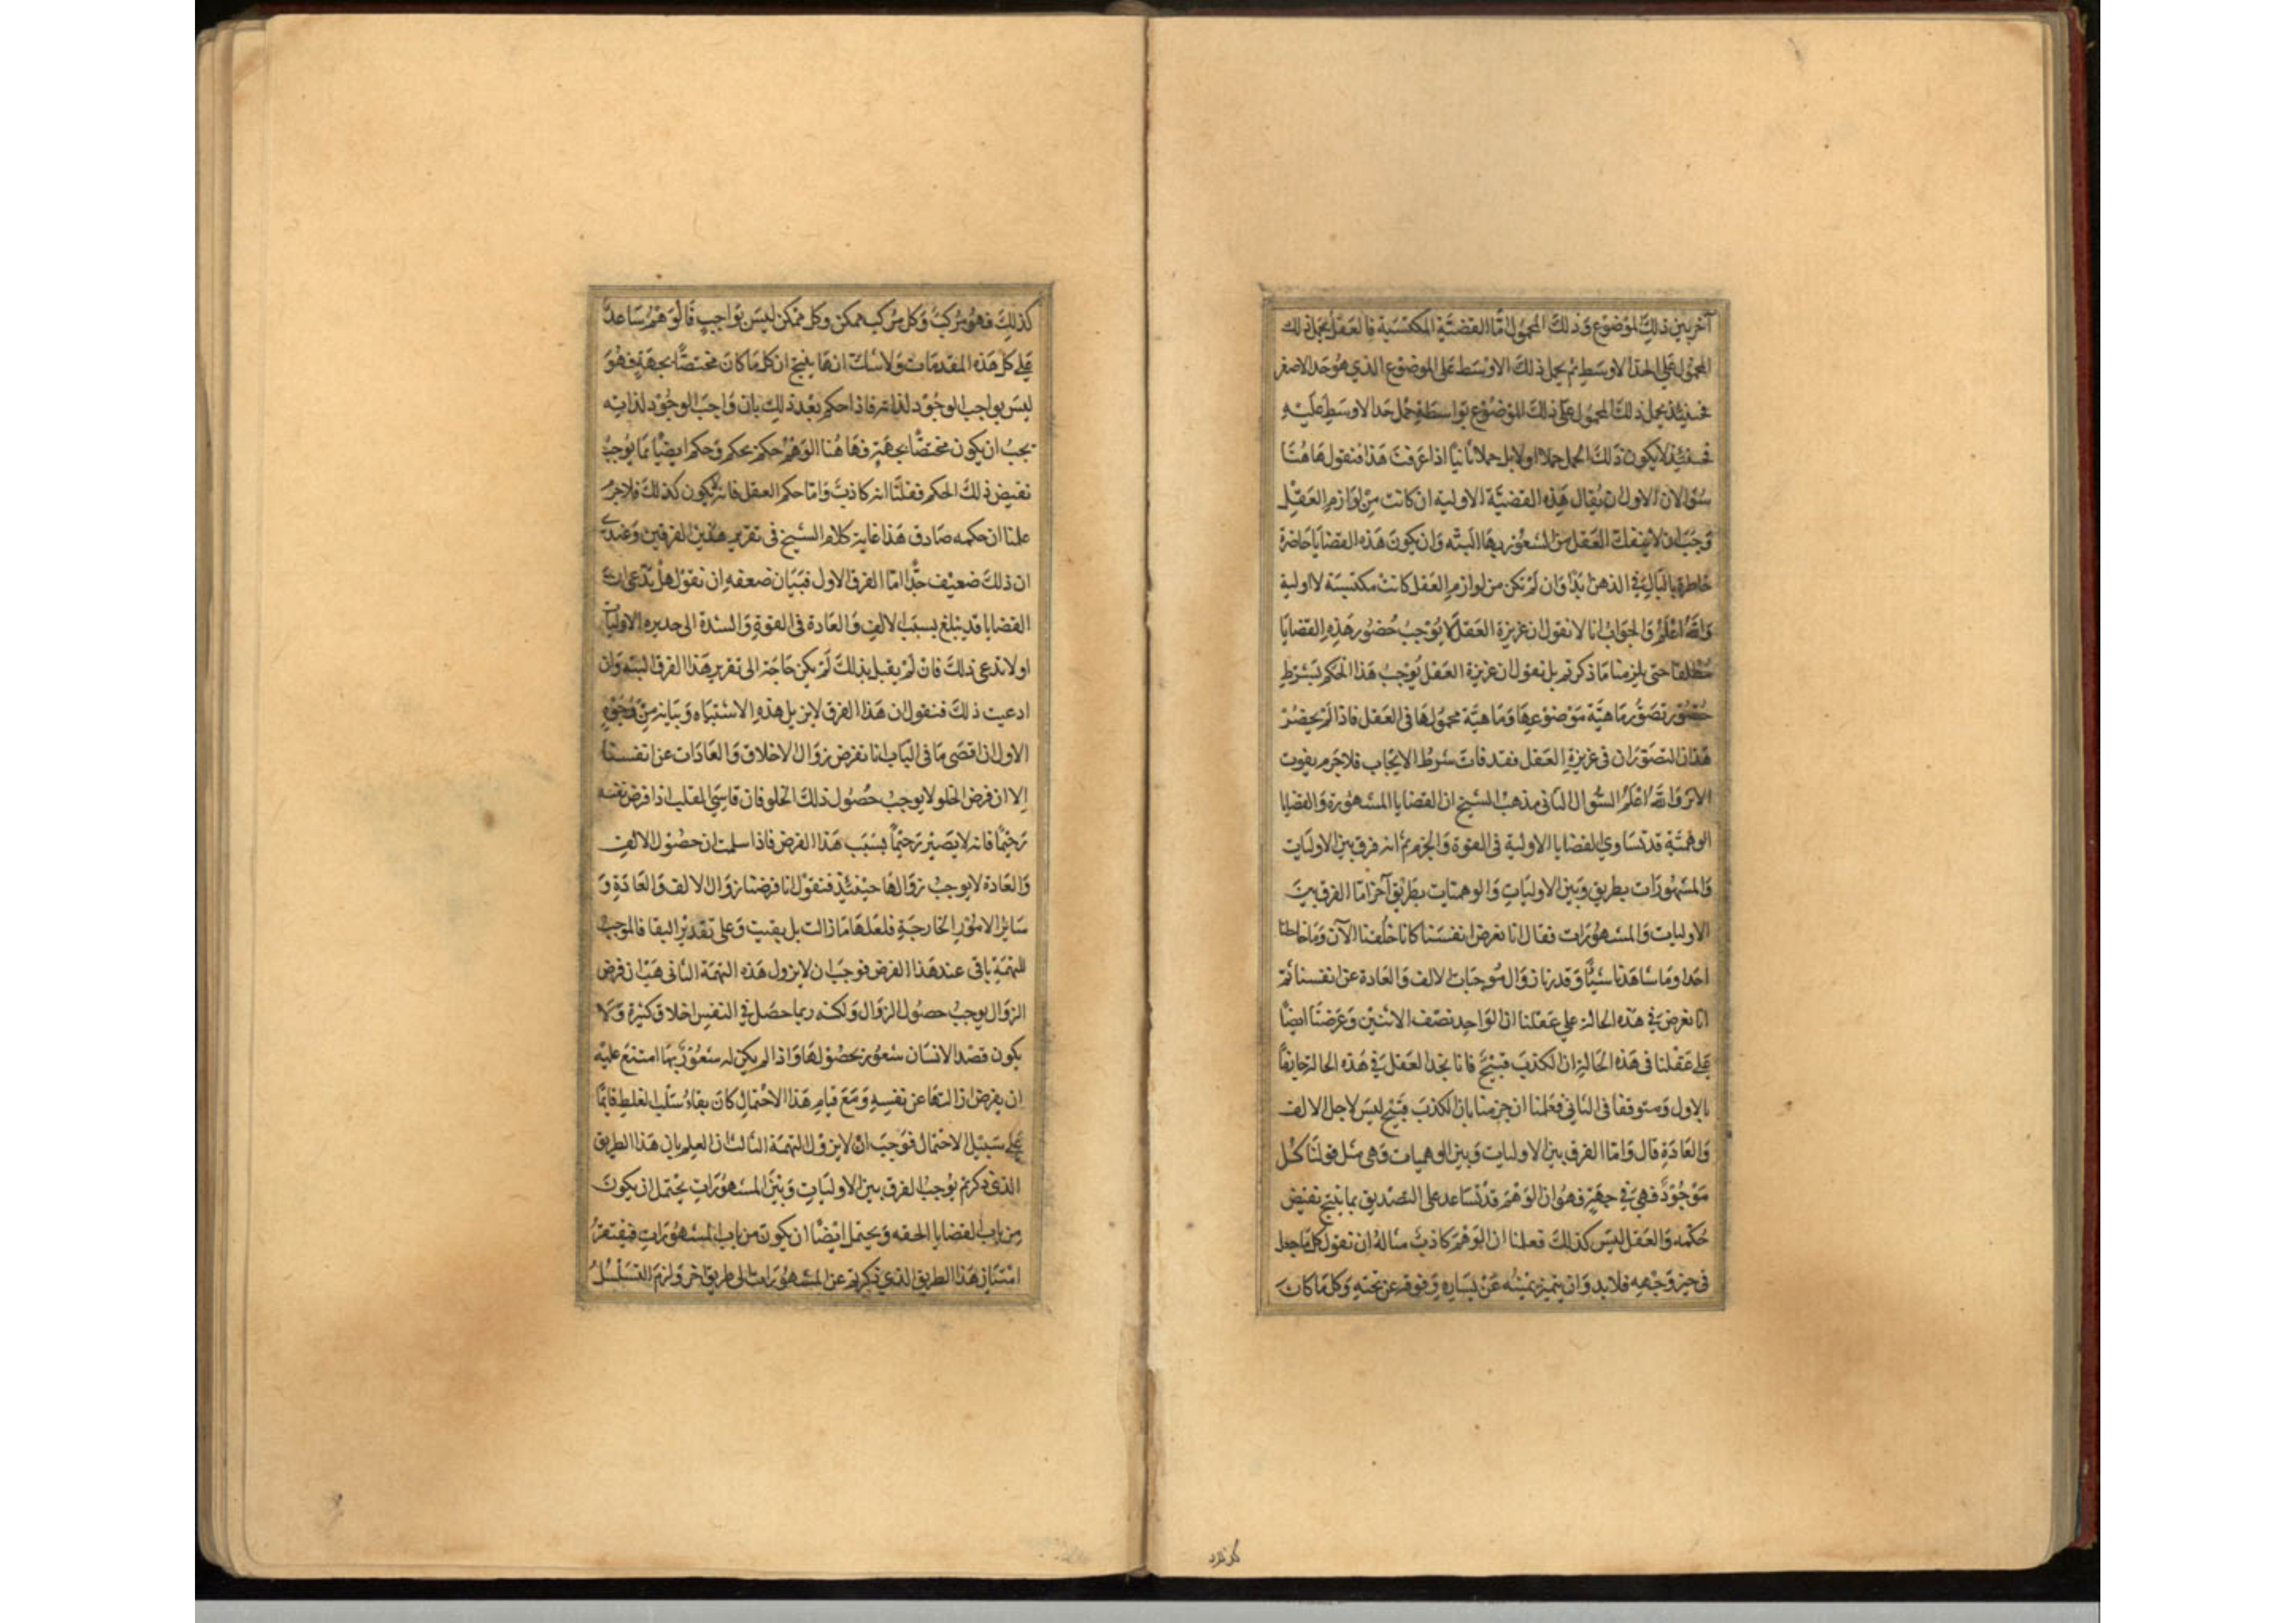 آخر بين ذلك الموضوع وذلك المحمول امّا القضيّة المكتسبة فالعقل يحمل ذلك
المحمول على الحد الاوسط ثم يحمل ذلك الاوسط على الموضوع الذي هو حد الاصغر
فحينئذ يحمل ذلك المحمول على ذلك الموضوع بواسطة حمل حد الاوسط عليه
فحينئذ لا يكون ذلك الحمل حملا اولا بل حملا ثانيا اذا عرفت هذا فنقول هاهنا
سؤالان الاول ان يقال هذه القضيّة الاولية ان كانت من لوازم العقل
وجب ان لا ينفك العقل من الشعور بها البته وان يكون هذه القضايا حاضرة
خاطرة بالبال في الذهن ابدا وان لم تكن من لوازم العقل كانت مكتسبة لا اولية
والله اعلم والجواب انا لا نقول ان غريزة العقل يوجب حضور هذه القضايا
مطلقا حتى يلزمنا ما ذكرتم بل نقول ان غريزة العقل يوجب هذا الحكم بشرط
حضور تصوّر ماهيّة موضوعها وماهيّة محمولها في العقل فاذا لم يحضر
هذان التصوّران في غريزة العقل فقد فات شرط الايجاب فلا جرم يفوت
الاثر والله اعلم السّؤال الثاني مذهب الشيخ ان القضايا المشهورة والقضايا
الوهميّة قد تساوي القضايا الاولية في القوة والجزم ثم انه فرق بين الاوليات
والمشهورات بطريق وبين الاوليات والوهميات بطريق آخر امّا الفرق بين
الاوليات والمشهورات فقال انا نفرض انفسنا كانا خلقنا الآن وما خالطنا
احدا وما شاهدنا شيئا وقدرنا زوال موجبات الالف والعادة عن انفسنا ثم
انا نعرض في هذه الحالة على عقلنا ان الواحد نصف الاثنين وعرضنا ايضا
على عقلنا في هذه الحالة ان الكذب قبيح فانا نجد العقل في هذه الحالة جازما
بالاول ومتوقفا في الثاني فعلمنا ان جزمنا بان الكذب قبيح ليس لاجل الالف
والعادة قال وامّا الفرق بين الاوليات وبين الوهميات وهي مثل قولنا كل
موجود فهي في جهة فهو ان الوهم قد تساعد على التصديق بما ينتج نقيض
حكمه والعقل ليس كذلك فعلمنا ان الوهم كاذب مثاله ان نقول كل ما جعل
في حيز وجهه فلا بد وان يتميز يمينه عن يساره وفوقه عن تحته وكل ما كان
كذلك فهو مركب وكل مركب ممكن وكل ممكن ليس بواجب فالوهم ساعد
على كل هذه المقدمات ولا شك انها ينتج ان كل ما كان مختصّا بجهة فهو
ليس بواجب الوجود لذاته فاذا حكم بعد ذلك بان واجب الوجود لذاته
يجب ان يكون مختصّا بجهة فهاهنا الوهم حكم بحكم وحكم ايضا بما يوجب
نقيض ذلك الحكم فقلنا انه كاذب وامّا حكم العقل فانه لا يكون كذلك فلا جرم
علمنا ان حكمه صادق هذا غاية كلام الشيخ في تقرير هذين الفرقين وعندي
ان ذلك ضعيف جدّا امّا الفرق الاول فبيان ضعفه ان نقول هل يدّعي ان
القضايا قد يبلغ بسبب الالف والعادة في القوة والشدة الى حد هذه الاوليات
اولا ندعى ذلك فان لم يقبل بذلك لم يكن حاجة الى تقرير هذا الفرق البته وان
ادعيت ذلك فنقول ان هذا الفرق لا يزيل هذه الاشتباه وبيانه من وجوه
الاول ان اقصى ما في الباب انا نفرض زوال الاخلاق والعادات عن انفسنا
الا ان فرض الخلو لا يوجب حصول ذلك الخلو فان قاسي القلب اذا فرض نفسه
رحيمًا فانه لا يصير رحيمًا بسبب هذا الفرض فاذا سلمت ان حصول الالف
والعادة لا يوجب زوالها حينئذ فنقول انا فرضنا زوال الالف والعادة و
سائر الامور الخارجة فلعلها ما زالت بل بقيت وعلى تقدير البقا فالموجب
للتهمة باقى عند هذا الفرض فوجب ان لا يزول هذه التهمة الثاني هب ان فرض
الزوال يوجب حصول الزوال ولكنه ربما حصل في النفس اخلاق كثيرة ولا
يكون قصد الانسان شعور بحصولها واذا لم يكن له شعور بها امتنع عليه
ان يفرض زالتها عن نفسه ومع قيام هذا الاحتمال كان بقاء سلب الغلط قائمًا
على سبيل الاحتمال فوجب ان لا يزول التهمة الثالث ان العلم بان هذا الطريق
الذي ذكرتم يوجب الفرق بين الاوليات وبين المشهورات يحتمل ان يكون
من باب القضايا الحقه ويحتمل ايضا ان يكون من باب المشهورات فيفتقر
امتياز هذا الطريق الذي ذكرتم عن المشهورات الى طريق اخر ولزم التسلسل